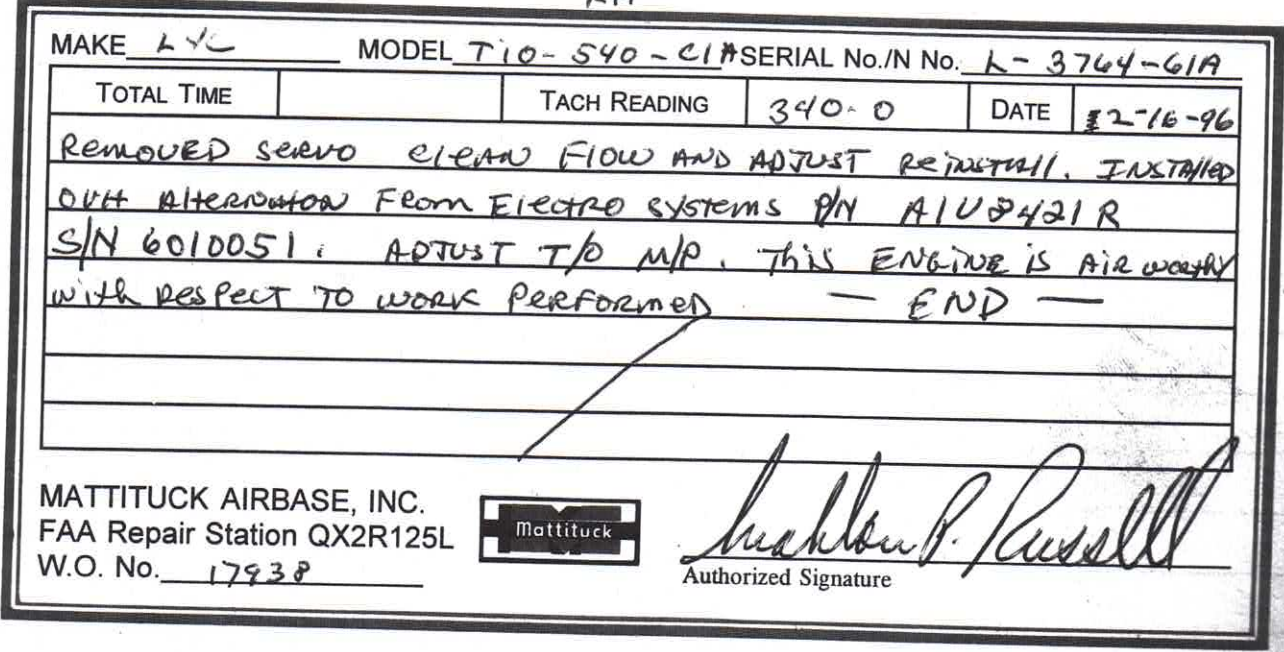 MAKE LYC MODEL TIO-540-C1A SERIAL No./N No. L-3764-61A
TOTAL TIME TACH READING 340.0 DATE 12-16-96
REMOVED SERVO CLEAN FLOW AND ADJUST REINSTALL. INSTALLED
OVH ALTERNATOR FROM ELECTRO SYSTEMS P/N A1U8421R
S/N 6010051. ADJUST T/O M/P. THIS ENGINE IS AIR WORTHY
WITH RESPECT TO WORK PERFORMED — END —
MATTITUCK AIRBASE, INC.
FAA Repair Station QX2R125L
W.O. No. 17938
Mattituck
Mahlon P. Russell
Authorized Signature